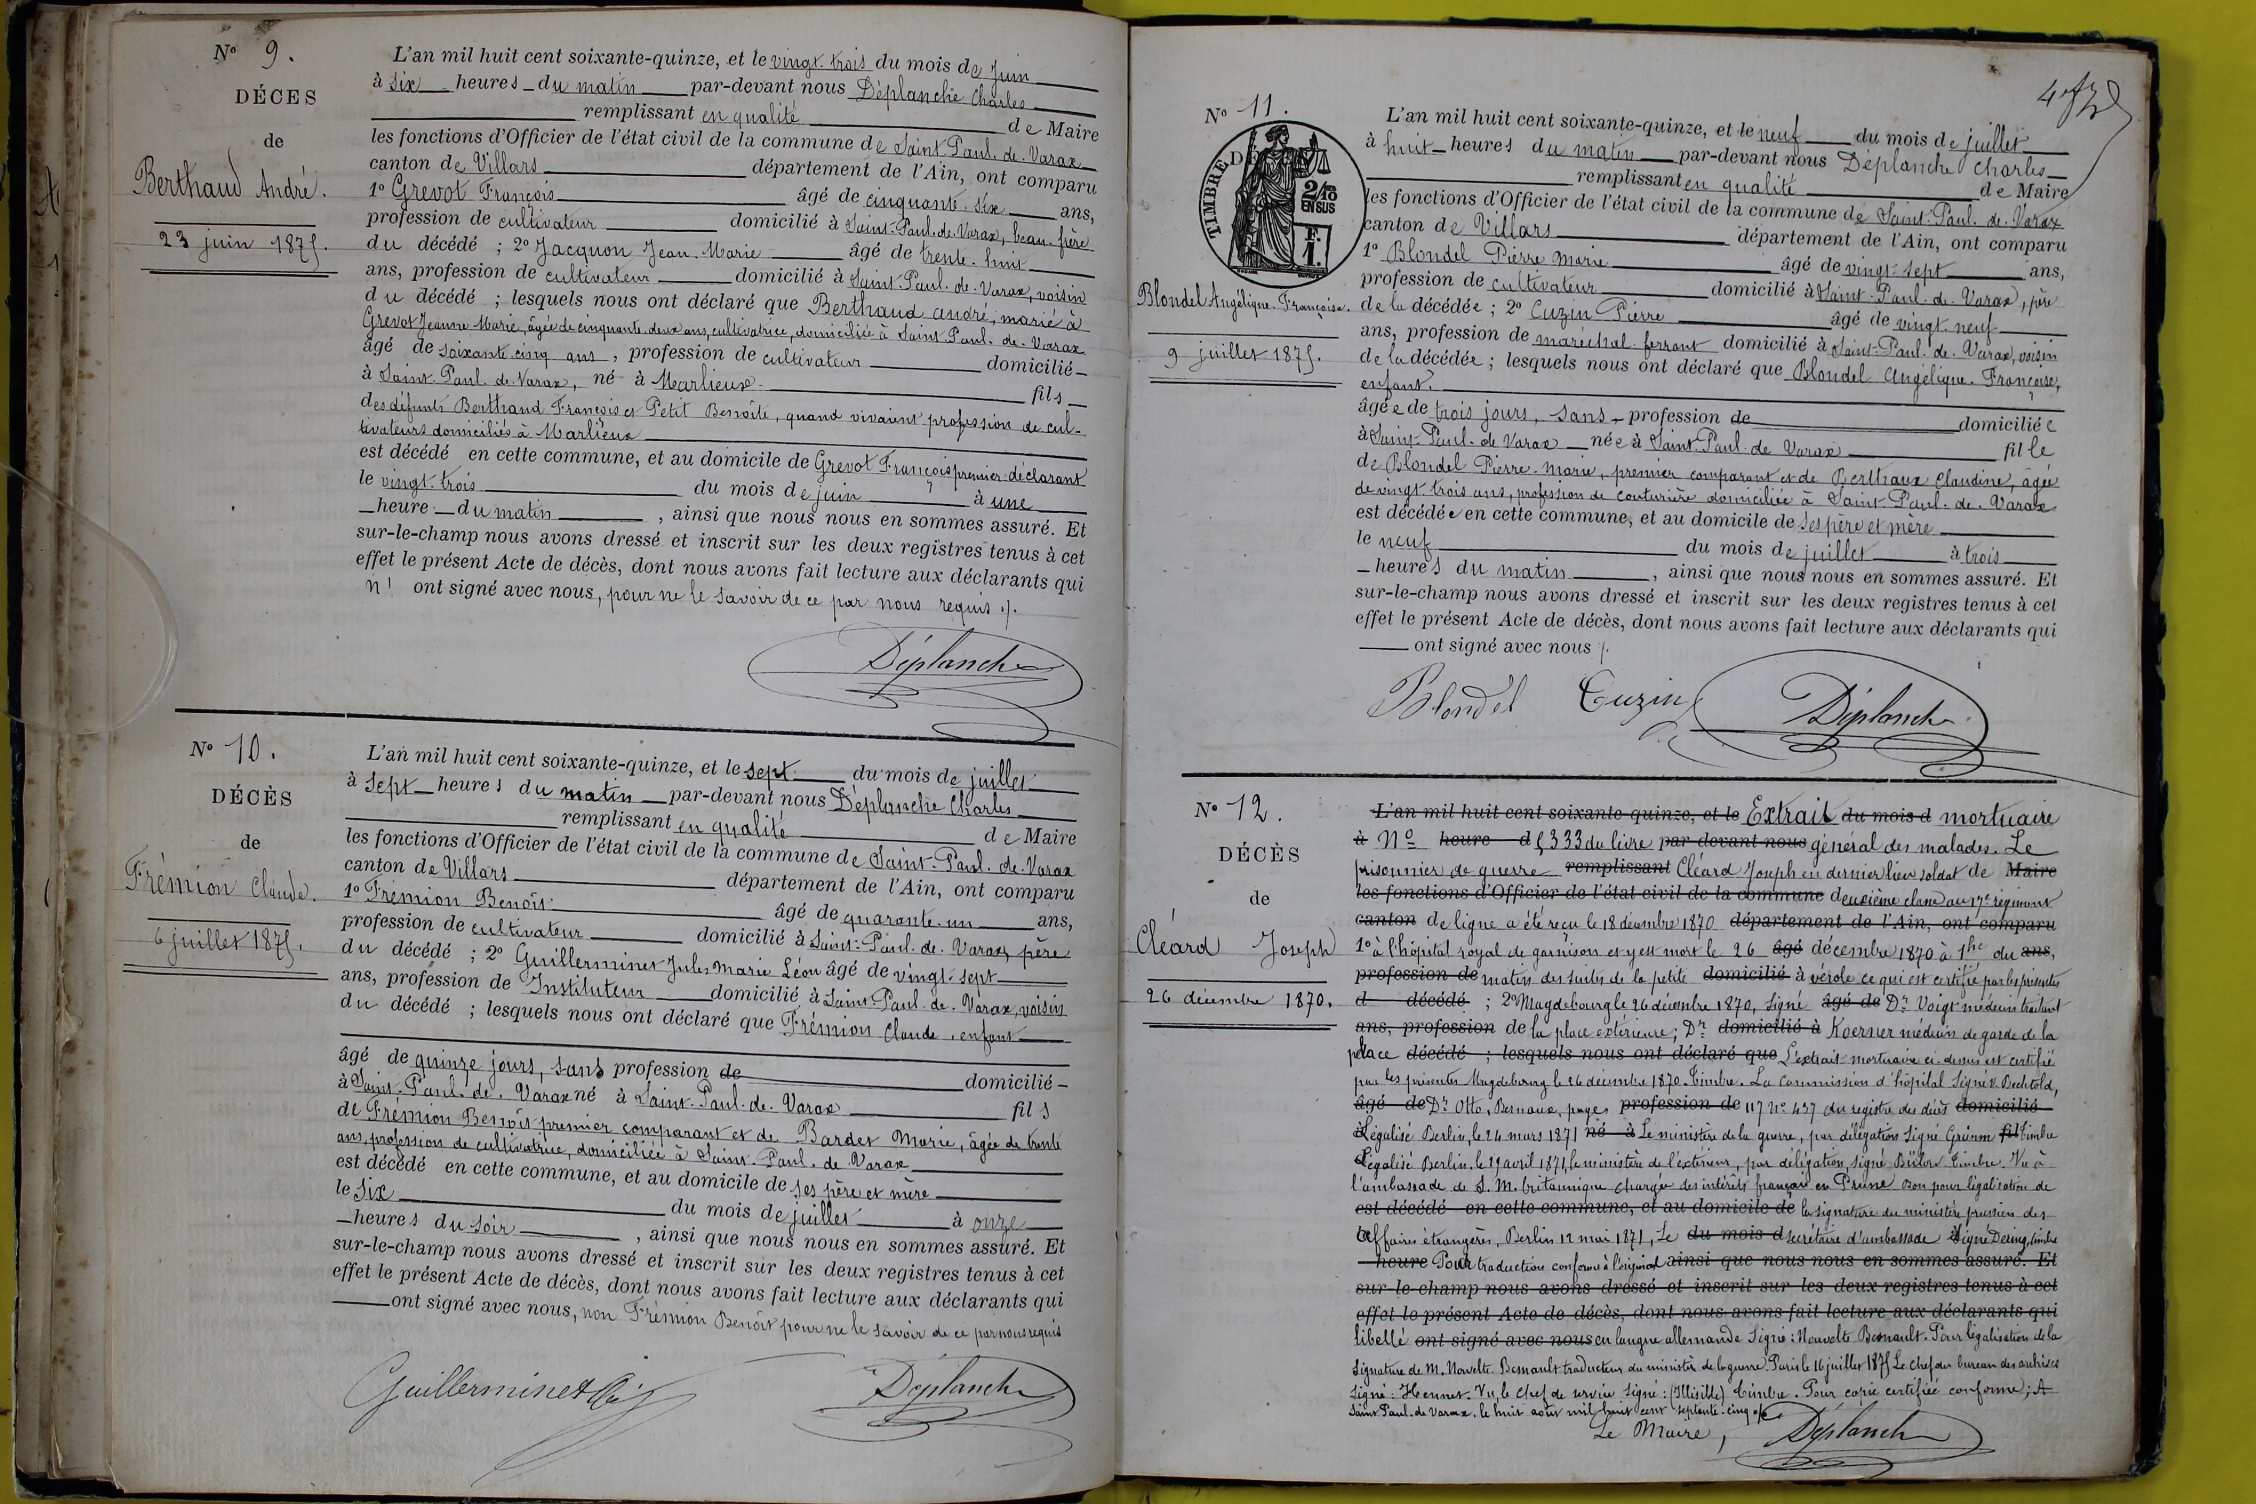 N° 9.
DÉCES
de
Berthaud André.
23 juin 1875.
L'an mil huit cent soixante-quinze, et le vingt-trois du mois de Juin
à six heures du matin par-devant nous Déplanche Charles
remplissant en qualité de Maire
les fonctions d'Officier de l'état civil de la commune de Saint-Paul-de-Varax
canton de Villars département de l'Ain, ont comparu
1° Grevot François âgé de cinquante-six ans,
profession de cultivateur domicilié à Saint-Paul-de-Varax, beau-frère
du décédé ; 2° Jacquon Jean-Marie âgé de trente-huit
ans, profession de cultivateur domicilié à Saint-Paul-de-Varax, voisin
du décédé ; lesquels nous ont déclaré que Berthaud André, marié à
Grevot Jeanne-Marie, âgée de cinquante-deux ans, cultivatrice, domiciliée à Saint-Paul-de-Varax
âgé de soixante-cinq ans, profession de cultivateur domicilié
à Saint-Paul-de-Varax, né à Marlieux fils
des défunts Berthaud François et Petit Benoîte, quand vivaient profession de cul-
tivateurs domiciliés à Marlieux
est décédé en cette commune, et au domicile de Grevot François, premier déclarant
le vingt-trois du mois de juin à une
heure du matin, ainsi que nous nous en sommes assuré. Et
sur-le-champ nous avons dressé et inscrit sur les deux registres tenus à cet
effet le présent Acte de décès, dont nous avons fait lecture aux déclarants qui
n' ont signé avec nous, pour ne le savoir de ce par nous requis ./.
Déplanche
N° 10.
DÉCÈS
de
Frémion Claude.
6 juillet 1875.
L'an mil huit cent soixante-quinze, et le sept du mois de juillet
à sept heures du matin par-devant nous Déplanche Charles
remplissant en qualité de Maire
les fonctions d'Officier de l'état civil de la commune de Saint-Paul-de-Varax
canton de Villars département de l'Ain, ont comparu
1° Frémion Benoît âgé de quarante-un ans,
profession de cultivateur domicilié à Saint-Paul-de-Varax, père
du décédé ; 2° Guillerminet Jules Marie Léon âgé de vingt-sept
ans, profession de Instituteur domicilié à Saint-Paul-de-Varax, voisin
du décédé ; lesquels nous ont déclaré que Frémion Claude, enfant
âgé de quinze jours, sans profession de domicilié
à Saint-Paul-de-Varax né à Saint-Paul-de-Varax fils
de Frémion Benoît premier comparant et de Bardet Marie, âgée de trente
ans, profession de cultivatrice, domiciliée à Saint-Paul-de-Varax
est décédé en cette commune, et au domicile de ses père et mère
le six du mois de juillet à onze
heures du soir, ainsi que nous nous en sommes assuré. Et
sur-le-champ nous avons dressé et inscrit sur les deux registres tenus à cet
effet le présent Acte de décès, dont nous avons fait lecture aux déclarants qui
ont signé avec nous, non Frémion Benoît pour ne le savoir de ce par nous requis
Guillerminet Déplanche
N° 11.
TIMBRE
2/10
EN SUS
F.
1.
Blondel Angélique-Françoise.
9 juillet 1875.
L'an mil huit cent soixante-quinze, et le neuf du mois de juillet
à huit heures du matin par-devant nous Déplanche Charles
remplissant en qualité de Maire
les fonctions d'Officier de l'état civil de la commune de Saint-Paul-de-Varax
canton de Villars département de l'Ain, ont comparu
1° Blondel Pierre Marie âgé de vingt-sept ans,
profession de cultivateur domicilié à Saint-Paul-de-Varax, père
de la décédée ; 2° Cuzin Pierre âgé de vingt-neuf
ans, profession de maréchal-ferrant domicilié à Saint-Paul-de-Varax, voisin
de la décédée ; lesquels nous ont déclaré que Blondel Angélique-Françoise,
enfant,
âgée de trois jours, sans profession de domiciliée
à Saint-Paul-de-Varax née à Saint-Paul-de-Varax fille
de Blondel Pierre-Marie, premier comparant et de Berthaux Claudine, âgée
de vingt-trois ans, profession de couturière domiciliée à Saint-Paul-de-Varax
est décédée en cette commune, et au domicile de ses père et mère
le neuf du mois de juillet à trois
heures du matin, ainsi que nous nous en sommes assuré. Et
sur-le-champ nous avons dressé et inscrit sur les deux registres tenus à cet
effet le présent Acte de décès, dont nous avons fait lecture aux déclarants qui
ont signé avec nous ./.
Blondel Cuzin Déplanche
N° 12.
DÉCÈS
de
Cléard Joseph
26 décembre 1870.
L'an mil huit cent soixante-quinze, et le Extrait du mois d mortuaire
à N° heure d 5333 du livre par-devant nous général des malades. Le
prisonnier de guerre remplissant Cléard Joseph en dernier lieu soldat de Maire
les fonctions d'Officier de l'état civil de la commune deuxième classe au 17e régiment
canton de ligne a été reçu le 18 décembre 1870 département de l'Ain, ont comparu
1° à l'hôpital royal de garnison et y est mort le 26 âgé décembre 1870 à 1he du ans,
profession de matin des suites de la petite domicilié à vérole ce qui est certifié par les présentes
d décédé ; 2° Magdebourg le 26 décembre 1870, signé âgé de Dr Voigt médecin traitant
ans, profession de la place extérieure ; Dr domicilié à Koerner médecin de garde de la
place décédé ; lesquels nous ont déclaré que L'extrait mortuaire ci-dessus est certifié
par les présentes Magdebourg le 26 décembre 1870. Timbre. La commission d'hôpital Signé V. Bechtold,
âgé de Dr Otto, Bernaux, pages profession de 117 N° 437 du registre des décès domicilié
Légalisé Berlin, le 24 mars 1871 né à Le ministère de la guerre, par délégation Signé Grünm fil timbre
Légalisé Berlin, le 29 avril 1871, le ministère de l'extérieur, par délégation, signé Bülow timbre. Vu à
l'ambassade de S. M. britannique chargée des intérêts français en Prusse bon pour légalisation de
est décédé en cette commune, et au domicile de la signature du ministère prussien des
affaires étrangères, Berlin 12 mai 1871, Le du mois d secrétaire d'ambassade Signé Dering, timbre
heure Pour traduction conforme à l'original ainsi que nous nous en sommes assuré. Et
sur-le-champ nous avons dressé et inscrit sur les deux registres tenus à cet
effet le présent Acte de décès, dont nous avons fait lecture aux déclarants qui
libellé ont signé avec nous en langue allemande Signé : Nouvelte Besnault. Pour légalisation de la
signature de M. Nouvelte Besnault traducteur du ministère de la guerre. Paris le 16 juillet 1875 Le chef du bureau des archives
Signé : Hennet. Vu, le chef de service signé : (Illisible) timbre. Pour copie certifiée conforme ; A
Saint-Paul-de-Varax, le huit août mil huit cent septante-cinq
Le Maire, Déplanche